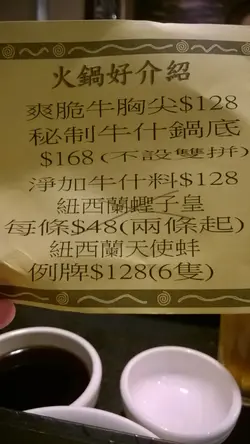 火鍋好介紹
爽脆牛胸尖$128
秘制牛什鍋底
$168(不設雙拼)
淨加牛什料$128
紐西蘭蟶子皇
每條$48(兩條起)
紐西蘭天使蚌
例牌$128(6隻)